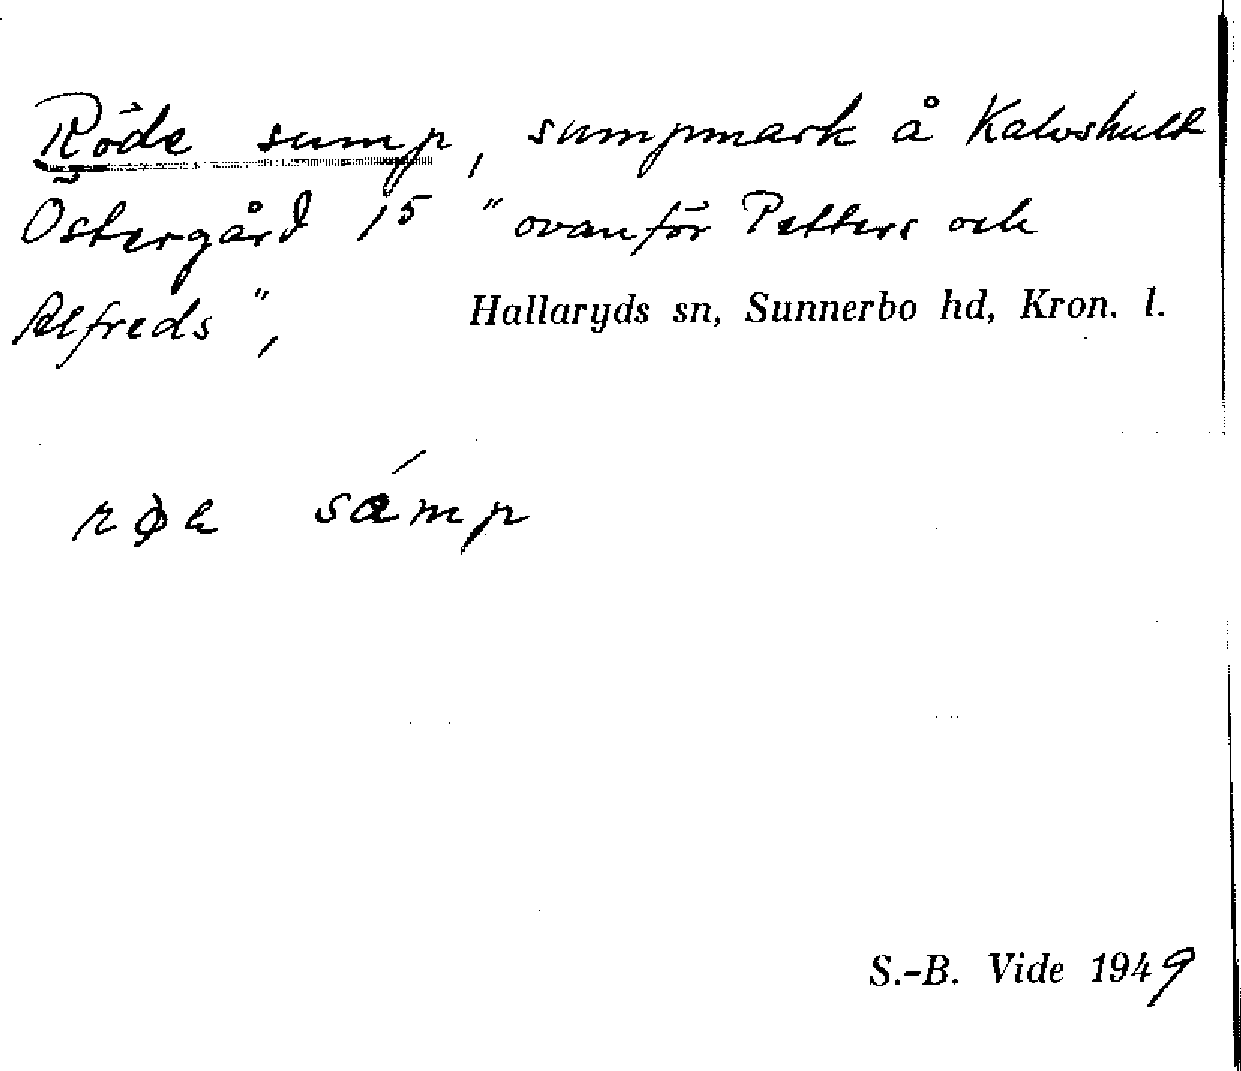 Röde sump, sumpmark å Kalvshult
Östergård 15 "ovanför Petters och
Alfreds",
Hallaryds sn, Sunnerbo hd, Kron. l.
sámp
S.-B. Vide 1949